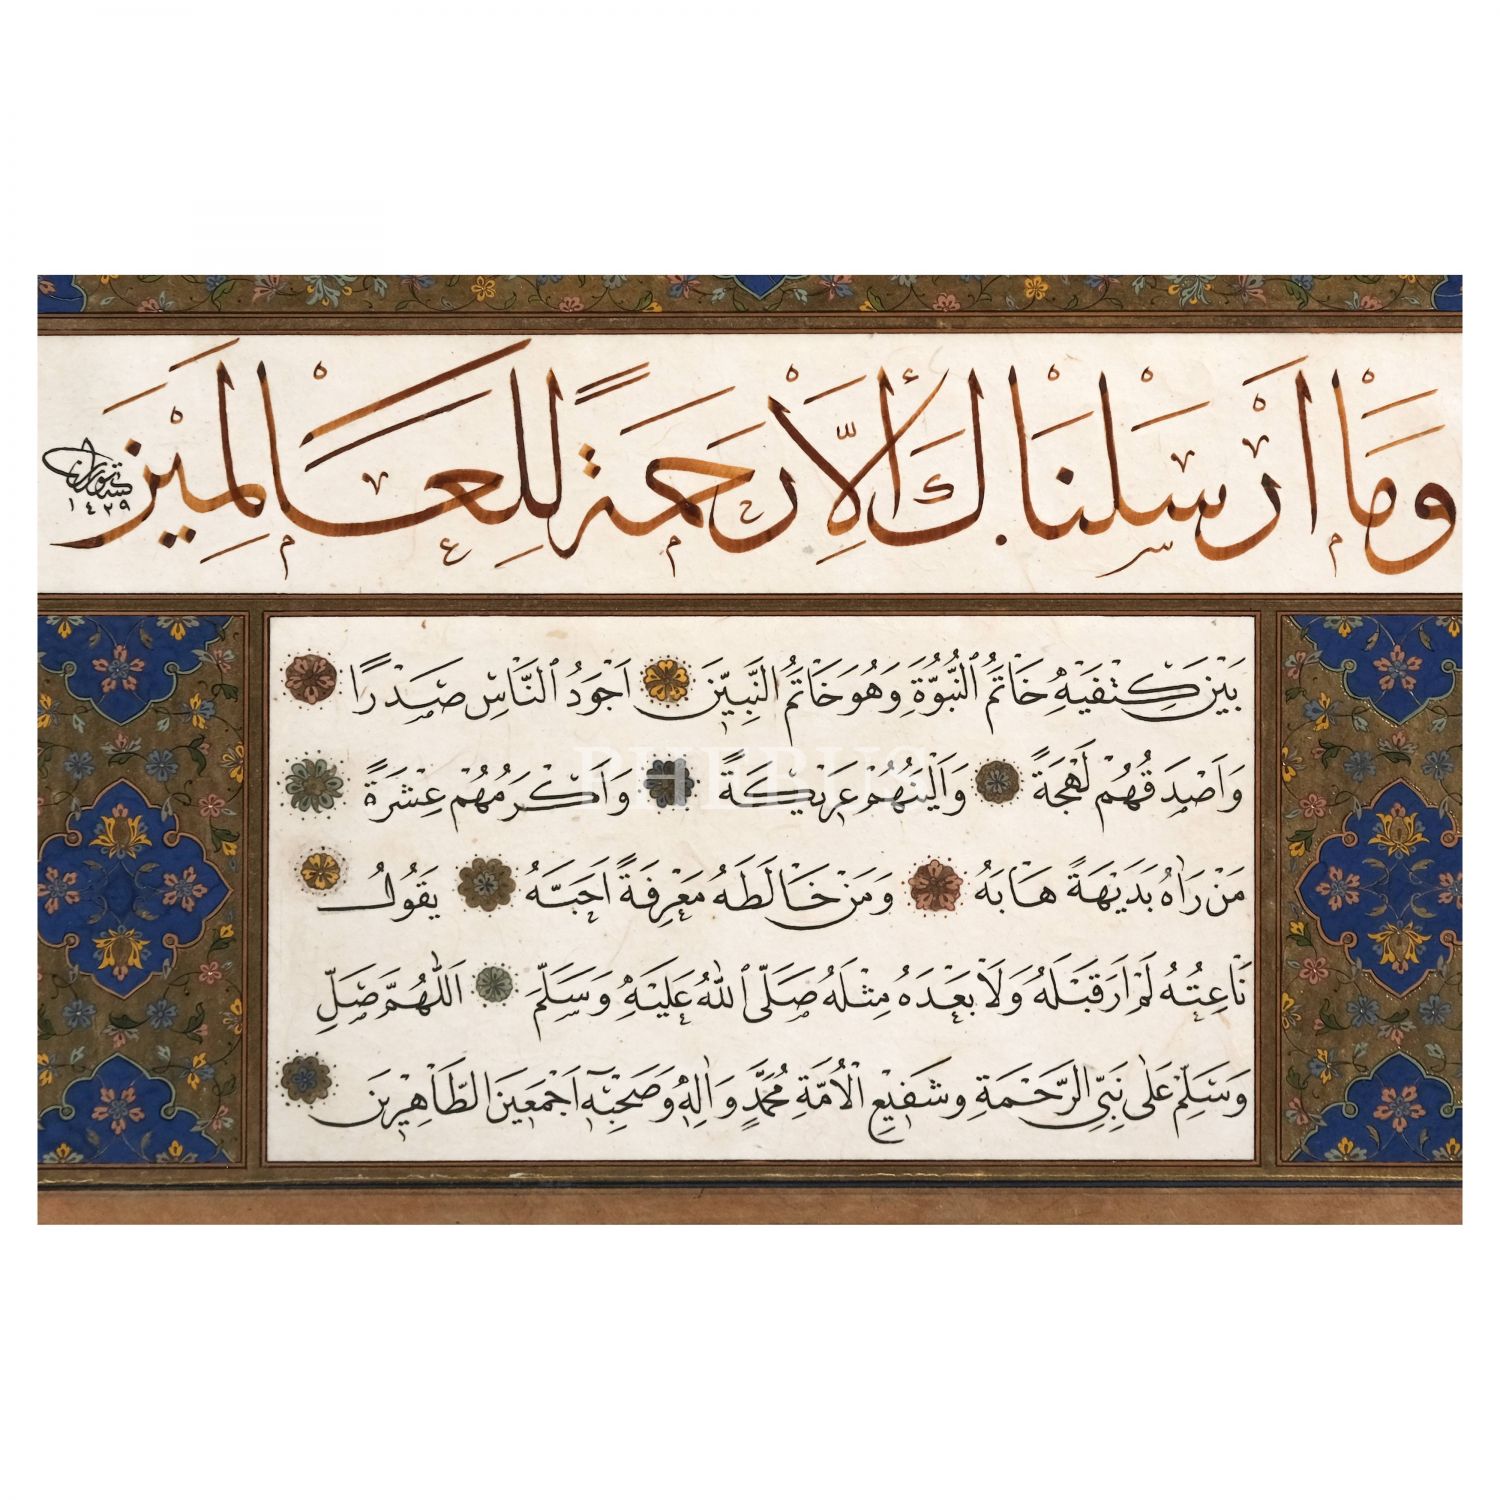 وَمَا أَرْسَلْنَاكَ إِلَّا رَحْمَةً لِلْعَالَمِينَ
١٤٢٩
بَيْنَ كِتْفَيْهِ خَاتَمُ النُّبُوَّةِ وَهُوَ خَاتَمُ النَّبِيّينَ اَجْوَدُ النَّاسِ صَدْرًا
وَاَصْدَقُهُمْ لَهْجَةً وَاَلْيَنُهُمْ عَرِيكَةً وَاَكْرَمُهُمْ عِشْرَةً
PHEBUS
مَنْ رَاٰهُ بَدَيهَةً هَابَهُ وَمَنْ خَالَطَهُ مَعْرِفَةً اَحَبَّهُ يَقُولُ
نَاعِتُهُ لَمْ اَرَ قَبْلَهُ وَلَا بَعْدَهُ مِثْلَهُ صَلَّى اللهُ عَلَيْهِ وَسَلَّمَ اَللّٰهُمَّ صَلِّ
وَسَلِّمْ عَلَى نَبِيِّ الرَّحْمَةِ وَشَفيعِ الْاُمَّةِ مُحَمَّدٍ وَاٰلِهِ وَصَحْبِهِ اَجْمَعينَ الطَّاهِرينَ